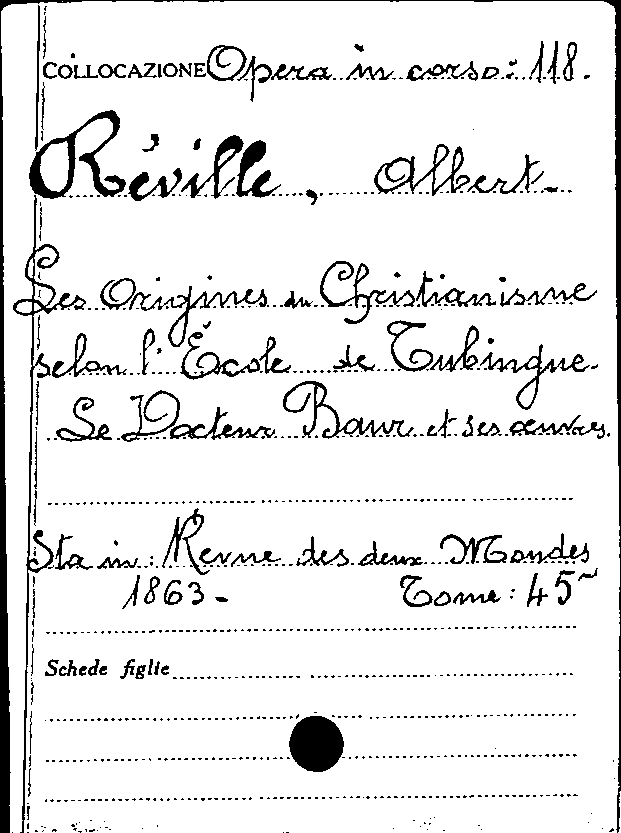 COLLOCAZIONE Opera in corso: 118.
Réville, Albert.
Les Origines du Christianisme
selon l'École de Tubingue.
Le Docteur Baur et ses œuvres.
Sta in: Revue des deux Mondes
1863- Tome: 45
Schede figlie